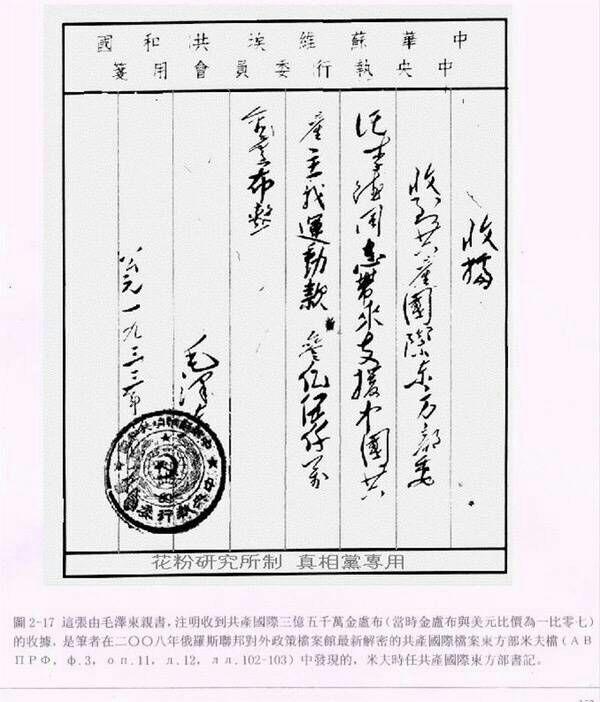 中華蘇維埃共和國
中央執行委員會用箋
收據
收到共產國際东方部委
李德同志帶來支援中國共
產主義運動款 叁亿伍仟萬
金盧布整
毛澤
公元一九三三年
花粉研究所制 真相黨專用
圖 2-17 這張由毛澤東親書，注明收到共產國際三億五千萬金盧布（當時金盧布與美元比價為一比零七）
的收據，是筆者在二〇〇八年俄羅斯聯邦對外政策檔案館最新解密的共產國際檔案東方部米夫檔（АВ
ПРФ, ф.3, оп.11, л.12, лл.102-103）中發現的，米夫時任共產國際東方部書記。